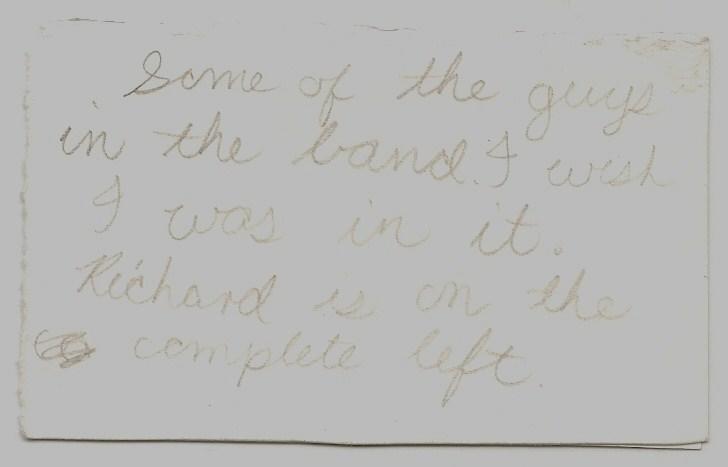 Some of the guys
in the band. I wish
I was in it.
Richard is on the
complete left.